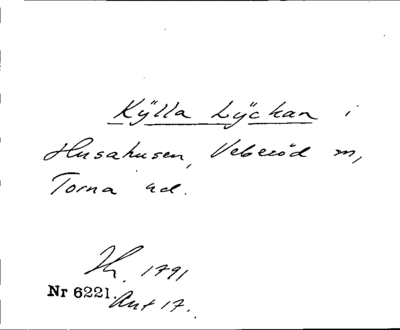 Kÿlla Lÿckan i
Husahusen, Veberöd sn,
Torna hd.
Lh. 1791
Nr 6221. Akt 17.